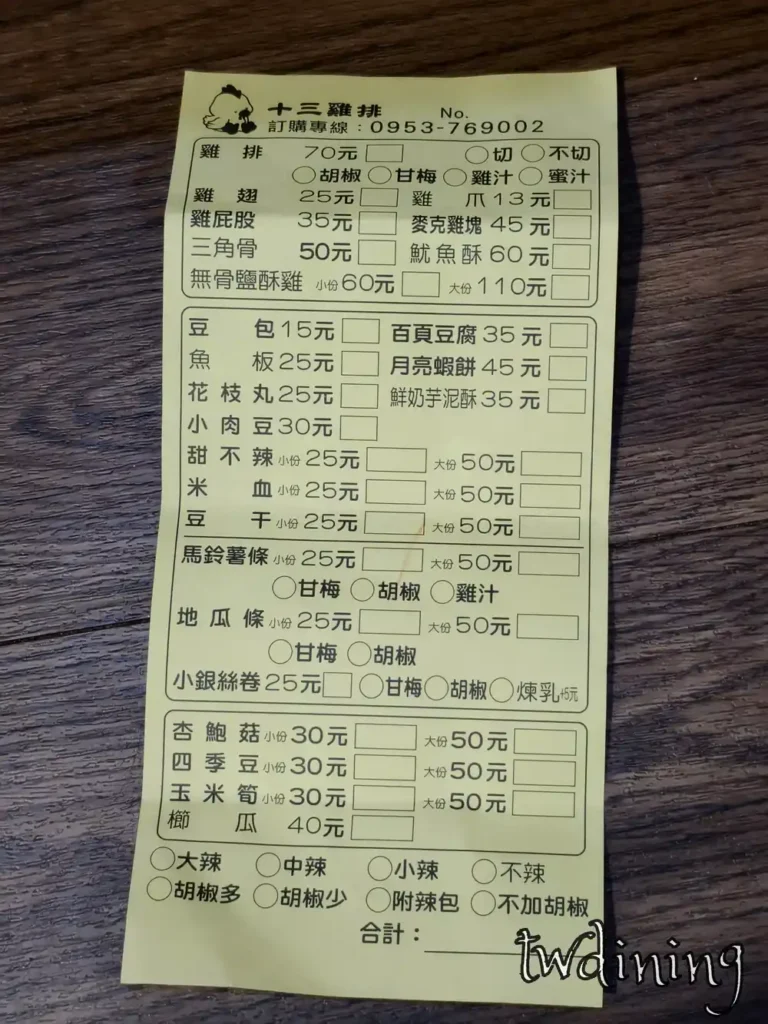 十三雞排 No.
訂購專線：0953-769002
雞排 70元 切 不切
胡椒 甘梅 雞汁 蜜汁
雞翅 25元 雞爪13元
雞屁股 35元 麥克雞塊 45元
三角骨 50元 魷魚酥60元
無骨鹽酥雞 小份60元 大份110元
豆包15元 百頁豆腐35元
魚板25元 月亮蝦餅45元
花枝丸25元 鮮奶芋泥酥35元
小肉豆30元
甜不辣 小份25元 大份50元
米血 小份25元 大份50元
豆干 小份25元 大份50元
馬鈴薯條 小份25元 大份50元
甘梅 胡椒 雞汁
地瓜條 小份25元 大份50元
甘梅 胡椒
小銀絲卷25元 甘梅 胡椒 煉乳+5元
杏鮑菇 小份30元 大份50元
四季豆 小份30元 大份50元
玉米筍 小份30元 大份50元
櫛瓜 40元
大辣 中辣 小辣 不辣
胡椒多 胡椒少 附辣包 不加胡椒
合計：
twdining